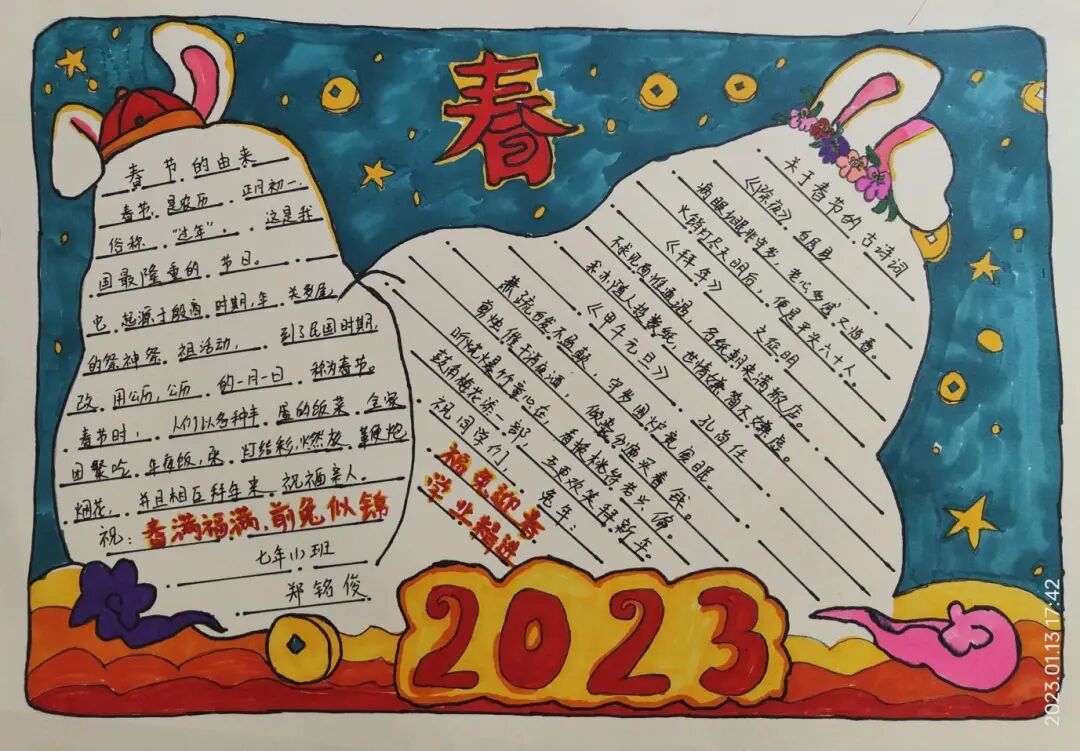 春
春节的由来
春节是农历正月初一.
俗称"过年".这是我
国最隆重的节日。
它起源于殷商时期,年关岁尾
的祭神祭祖活动,到了民国时期,
改用公历,公历的一月一日称为春节。
春节时,人们以多种丰盛的饭菜全家
团聚吃年夜饭,张灯结彩,燃放鞭炮
烟花,并且相互拜年来祝福亲人。
祝:春满福满,前兔似锦
七年(1)班
郑铭俊
关于春节的古诗词
《除夜》白居易
病眼少眠非守岁,老心多感又临春。
火销灯尽天明后,便是平头六十人。
《拜年》文征明
不求见面惟通谒,名纸朝来满敝庐。
余亦随人投数纸,世情嫌简不嫌虚。
《甲午元旦》孔尚任
萧疏白发不盈颠,守岁围炉竟废眠。
剪烛催干消夜酒,倾囊分遍买春钱。
听烧爆竹童心在,看换桃符老兴偏。
鼓角梅花添一部,五更欢笑拜新年。
祝同学们,兔年:
福兔迎春
学业精进
2023
2023.01.13 17:42